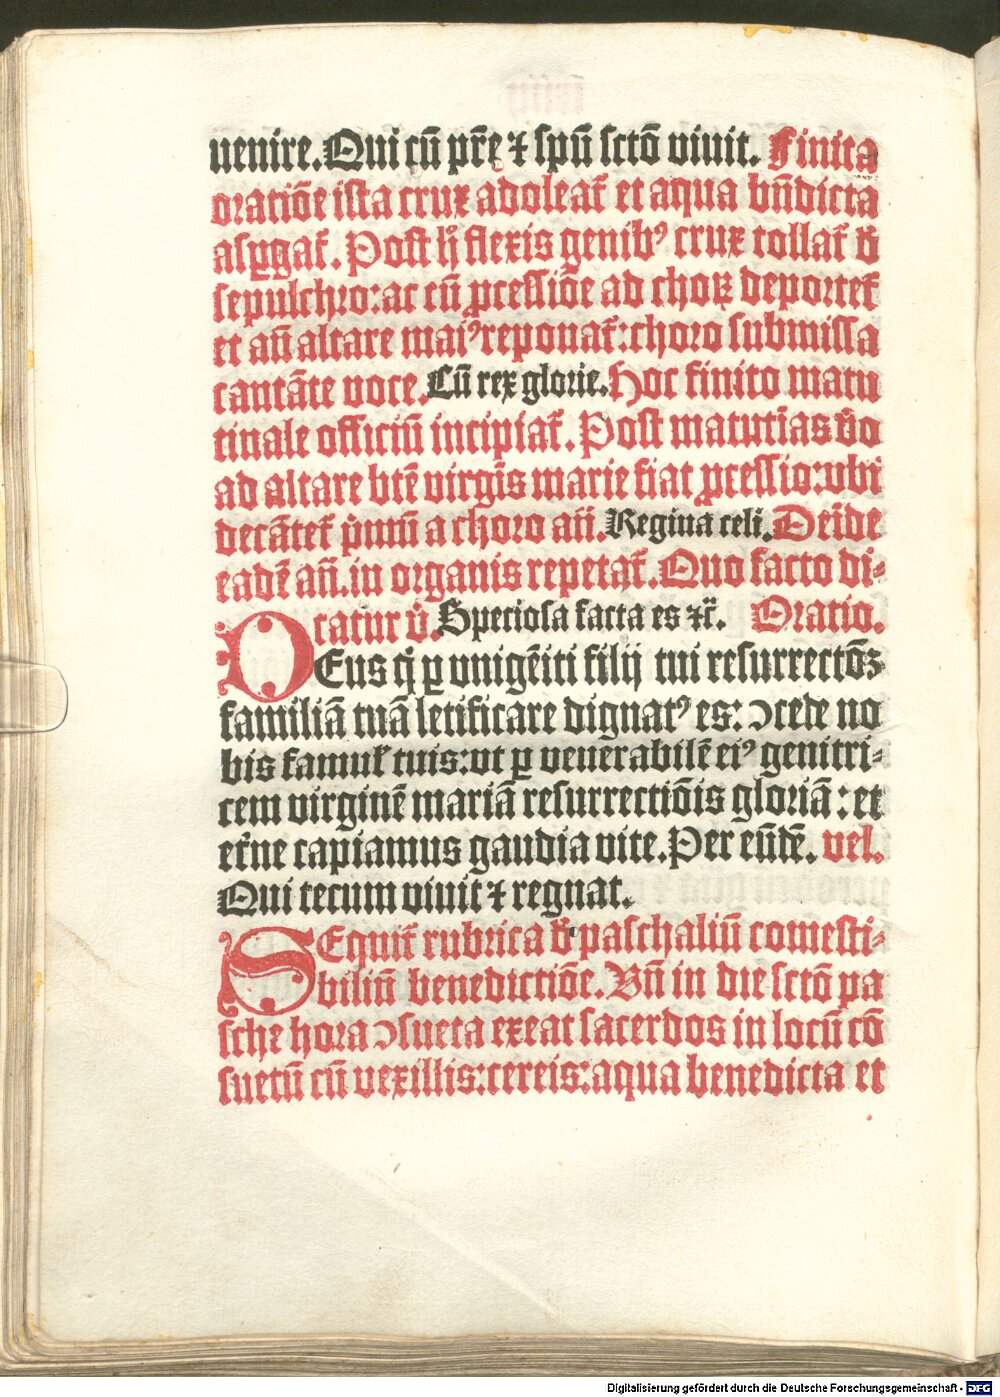 uenire. Qui cū pr̄e ⁊ spū sctō viuit. Finita
oratiōe ista crux adoleat᷑ et aqua bn̄dicta
aſꝑgat᷑. Post h̄ flexis genibꝰ crux tollat᷑ d̄
ſepulchro: ac cū ꝓceſſiōe ad choꝝ deportet᷑
et an̄ altare maiꝰ reponat᷑: choro ſubmiſſa
cantāte voce. Cū rex glorie. Hoc finito matu
tinale officiū incipiat᷑. Post matutīas v̄o
ad altare btē virgīs marie fiat ꝓceſſio: vbi
decātet᷑ pͥmū a choro an̄. Regina celi. Deīde
eadē an̄. in organis repetat᷑. Quo facto di⸗
catur v̄. Specioſa facta es ⁊c̄. Oratio.
DEus q̄ ꝑ vnigēiti filij tui reſurrectōꝫ
familiā tuā letificare dignatꝰ es: ↄcede no
bis famul᷑ tuis: vt ꝑ venerabilē eiꝰ genitri⸗
cem virginē mariā reſurrectiōis gloriā: et
et᷑ne capiamus gaudia vite. Per eūdē. vel.
Qui tecum viuit ⁊ regnat.
SEquit᷑ rubrica d̄ paſchaliū comeſti⸗
biliū benedictiōe. Vn̄ in die ſctō pa
ſche hora ↄſueta exeat ſacerdos in locū cō
ſuetū cū vexillis: cereis: aqua benedicta et
Digitalisierung gefördert durch die Deutsche Forschungsgemeinschaft - DFG